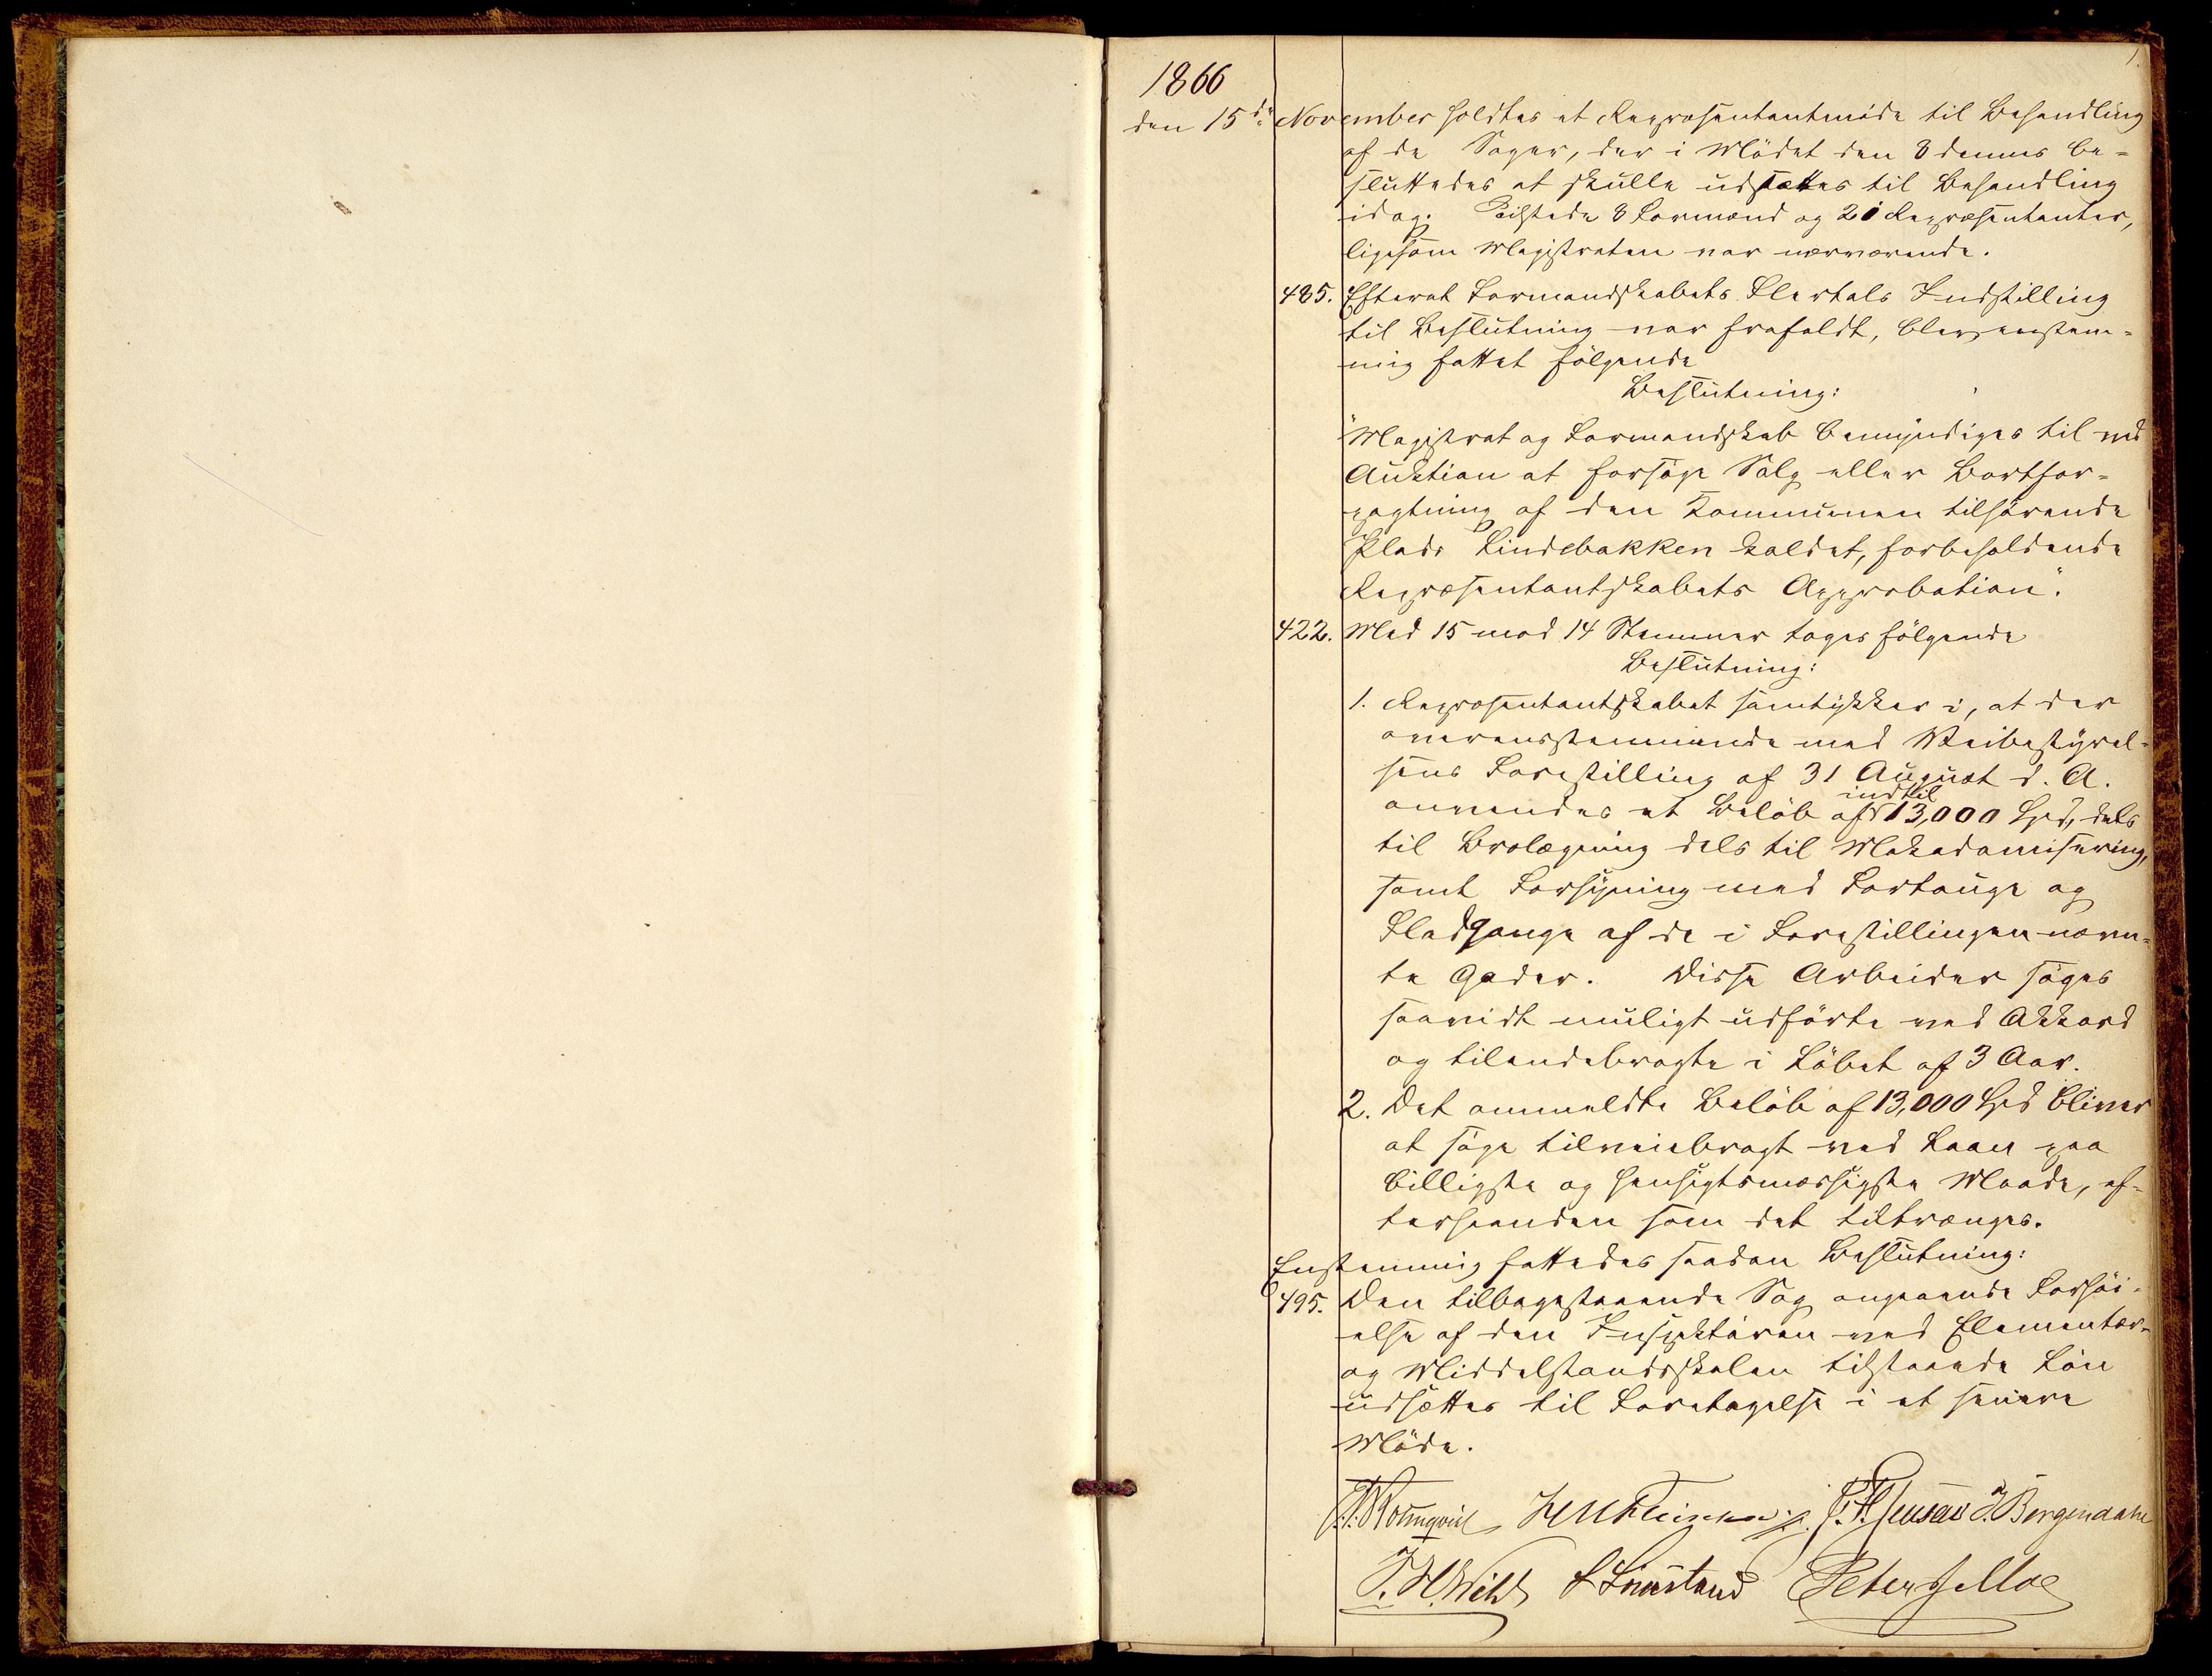 1.
1866
den 15de November holdtes et Repræsentantmøde til Behandling
af de Sager, der i Mødet den 8 dennes be-
sluttedes at skulle udsættes til Behandling
idag. Tilstede 8 Formænd og 21 Repræsentanter,
ligesom Magistraten var nærværende.
485. Efterat Formandskabets Flertals Indstilling
til Beslutning var frafaldt, blev eenstem-
mig fattet følgende
Beslutning:
"Magistrat og Formandskab bemyndiges til ved
Auktion at forsøge Salg eller Bortfor-
pagtning af den Kommunen tilhørende
Plads Lindebakken kaldet, forbeholdende
Repræsentantskabets Approbation".
422. Med 15 mod 14 Stemmer toges følgende
Beslutning:
1. Repræsentantskabet samtykker i, at der
overensstemmende med Veibestyrel-
sens Forestilling af 31 August d. A.
anvendes et Beløb af indtil 13,000 Spd, dels
til Brolægning dels til Makadamisering,
samt Forsyning med Fortauge og
Fladgange af de i Forestillingen nævn-
te Gader. Disse Arbeider søges
saavidt muligt udførte ved Akkord
og tilendebragte i Løbet af 3 Aar.
2. Det anmeldte Beløb af 13,000 Spd bliver
at søge tilveiebragt ved Laan paa
billigste og hensigtsmæssigste Maade, ef-
terhaanden som det tiltrænges.
Enstemmig fattedes saadan Beslutning:
495. Den tilbagestaaende Sag angaaende Forhøi-
else af den Inspektøren ved Elementær-
og Middelstandsskolen tilstaaede Løn
udsættes til Foretagelse i et senere
Møde.
Holmqvist J. Bergendahl
J. H. Wiht Peter J Moe